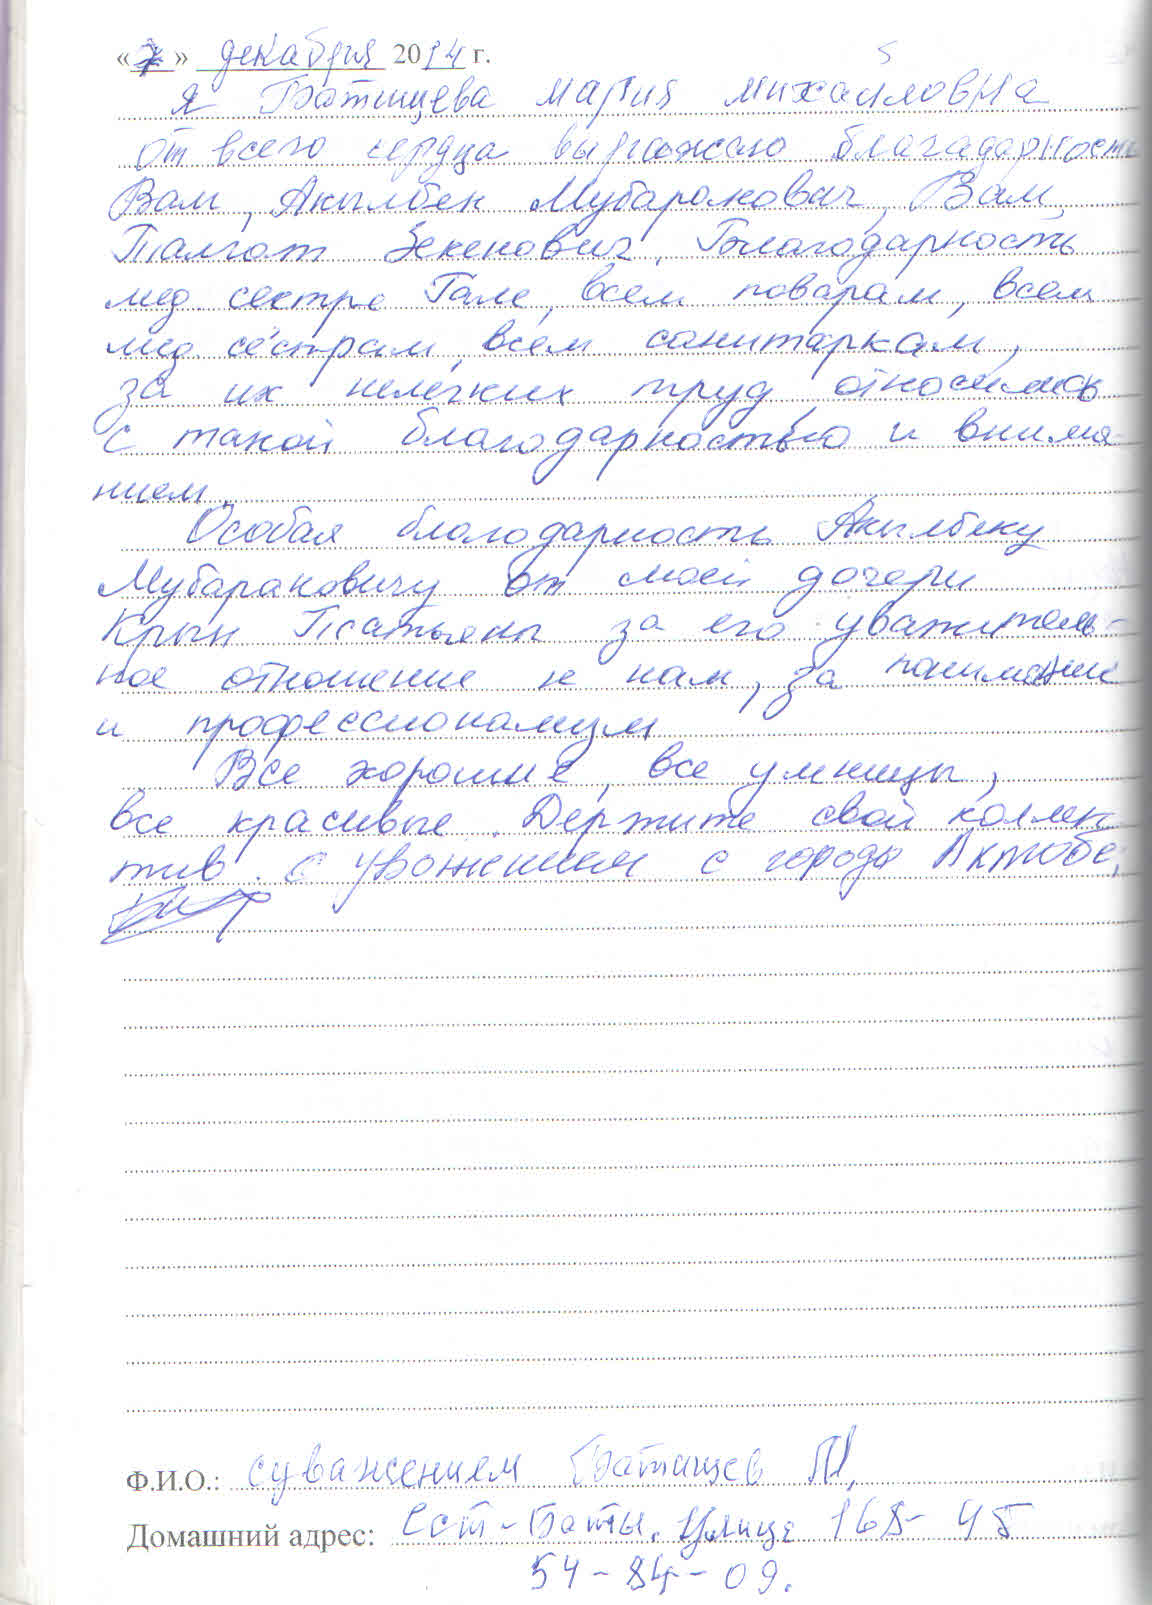 «7» декабря 2014 г.
я Батищева мария михайловна
от всего сердца выражаю благадарность
Вам, Акылбек Мубаракович, Вам,
Талгат Зекенович. Благодарность
мед. сестре Гале, всем поварам, всем
мед. сёстрам, всем санитаркам,
за их нелегких труд, относились
с такой благодарностью и внима-
нием.
Особая благодарность Акылбеку
Мубараковичу от моей дочери
Крын Татьяны за его уважитель-
ное отношение к нам, за понимание
и профессионализм
Все хорошие, все умницы,
все красивые. Держите свой коллек
тив. с уважением с города Актобе,
Ф.И.О.: суважением Батищев М,
Домашний адрес: Ест-Баты. Улице 168-45
54-84-09.